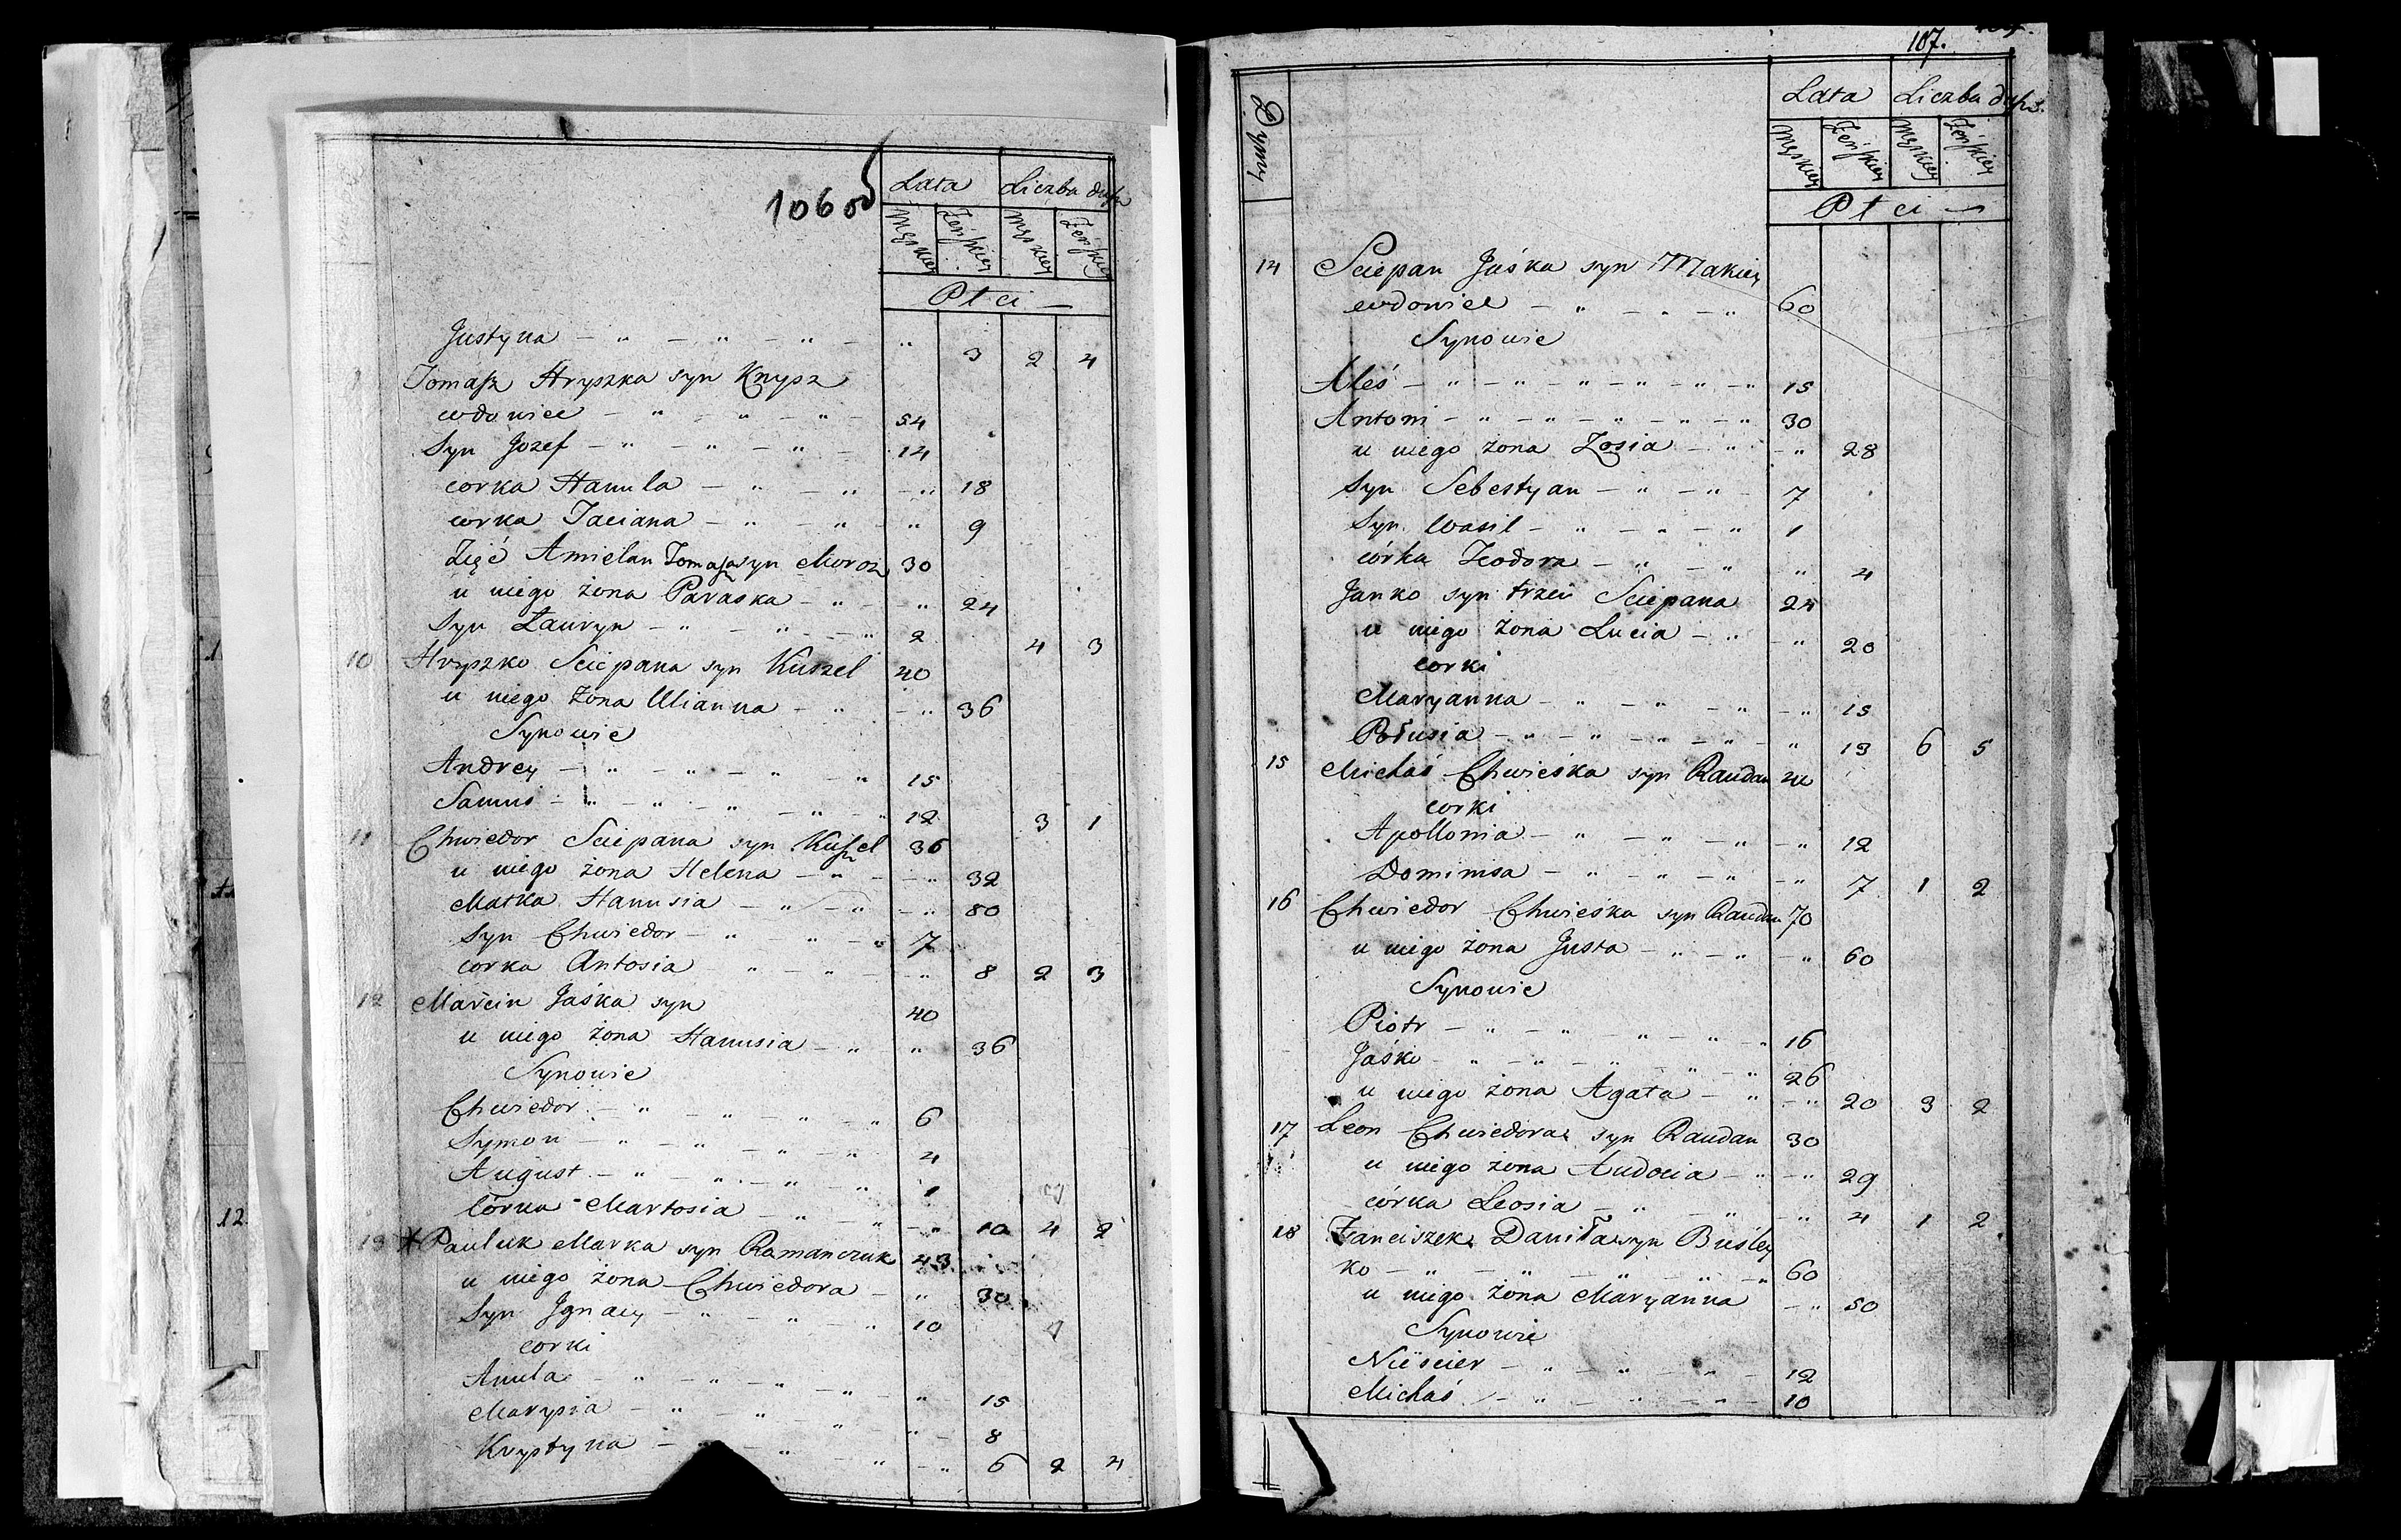 106 od
Lata Liczba dusz
Męzkiey Żeńskiey Męzkiey Żeńskiey
Płci
Justyna - " - " - " - " 3 2 4
Tomasz Hryszka syn Knysz
wdowiec - " - " - " - 54
Syn Jozef - " - " - " - 14
corka Hanula - " - " - " 18
corka Taciana - " - " - " 9
Zięć Amielan Tomasza syn Moroz 30
u niego żona Paraska - " - " 24
Syn Ławryn - " - " - " 2 4 3
10 Hryszko Sciepana syn Kuszel 40
u niego żona Ulianna - " - " 36
Synowie
Andrey - " - " - " - " 15
Samuś - " - " - " - " 12 3 1
11 Chwiedor Sciepana syn Kuszel 36
u niego żona Helena - " - " 32
Matka Hanusia - " - " - " 80
Syn Chwiedor - " - " - " 7
corka Antosia - " - " - " 8 2 3
12 Marcin Jaśka syn 40
u niego żona Hanusia - " " 36
Synowie
Chwiedor - " - " - " - " 6
Symon - " - " - " - " 4
August - " - " - " - " 1
Córka Martosia - " - " - " 10 4 2
13 × Pauluk Marka syn Ramanczuk 43
u niego żona Chwiedora - " 30
Syn Jgnacy - " - " - " 10
corki
Anula - " - " - " - " - " 15
Marysia - " - " - " - " - 8
Krystyna - " - " - " - " 6 2 4
107.
Dymy
Lata Liczba dusz.
Męzkiey Żeńskiey Męzkiey Żeńskiey
Płci
14 Sciepan Jaśka syn Makiey
wdowiec - " - " - " 60
Synowie
Aleś - " - " - " - " - " - " 15
Antoni - " - " - " - " - " 30
u niego żona Zosia - " - " 28
Syn Sebestyan - " - " - 7
Syn Wasil - " - " - " 1
córka Teodora - " - " " 4
Janko syn trzeci Sciepana 24
u niego żona Lucia - " - " 20
corki
Maryanna - " - " - " - " 15
Połusia - " - " - " - " - " 13 6 5
15 Michaś Chwieśka syn Raudan 44
corki
Apollonia - " - " - " - " 12
Dominisa - " - " - " - " 7 1 2
16 Chwiedor Chwieśka syn Raudan 70
u niego żona Justa - " - " - " 60
Synowie
Piotr - " - " - " - " - " 16
Jaśko - " - " - " - " - " 26
u niego żona Agata - " - " 20 3 2
17 Leon Chwiedora syn Raudan 30
u niego żona Audocia - " - " 29
córka Leosia - " - " - " 4 1 2
18 Franciszek Daniła syn Buśley
ko - " - " - " - " - " 60
u niego żona Maryanna - " 50
Synowie
Nieścier - " - " - " - 12
Michaś - " - " - " - 10